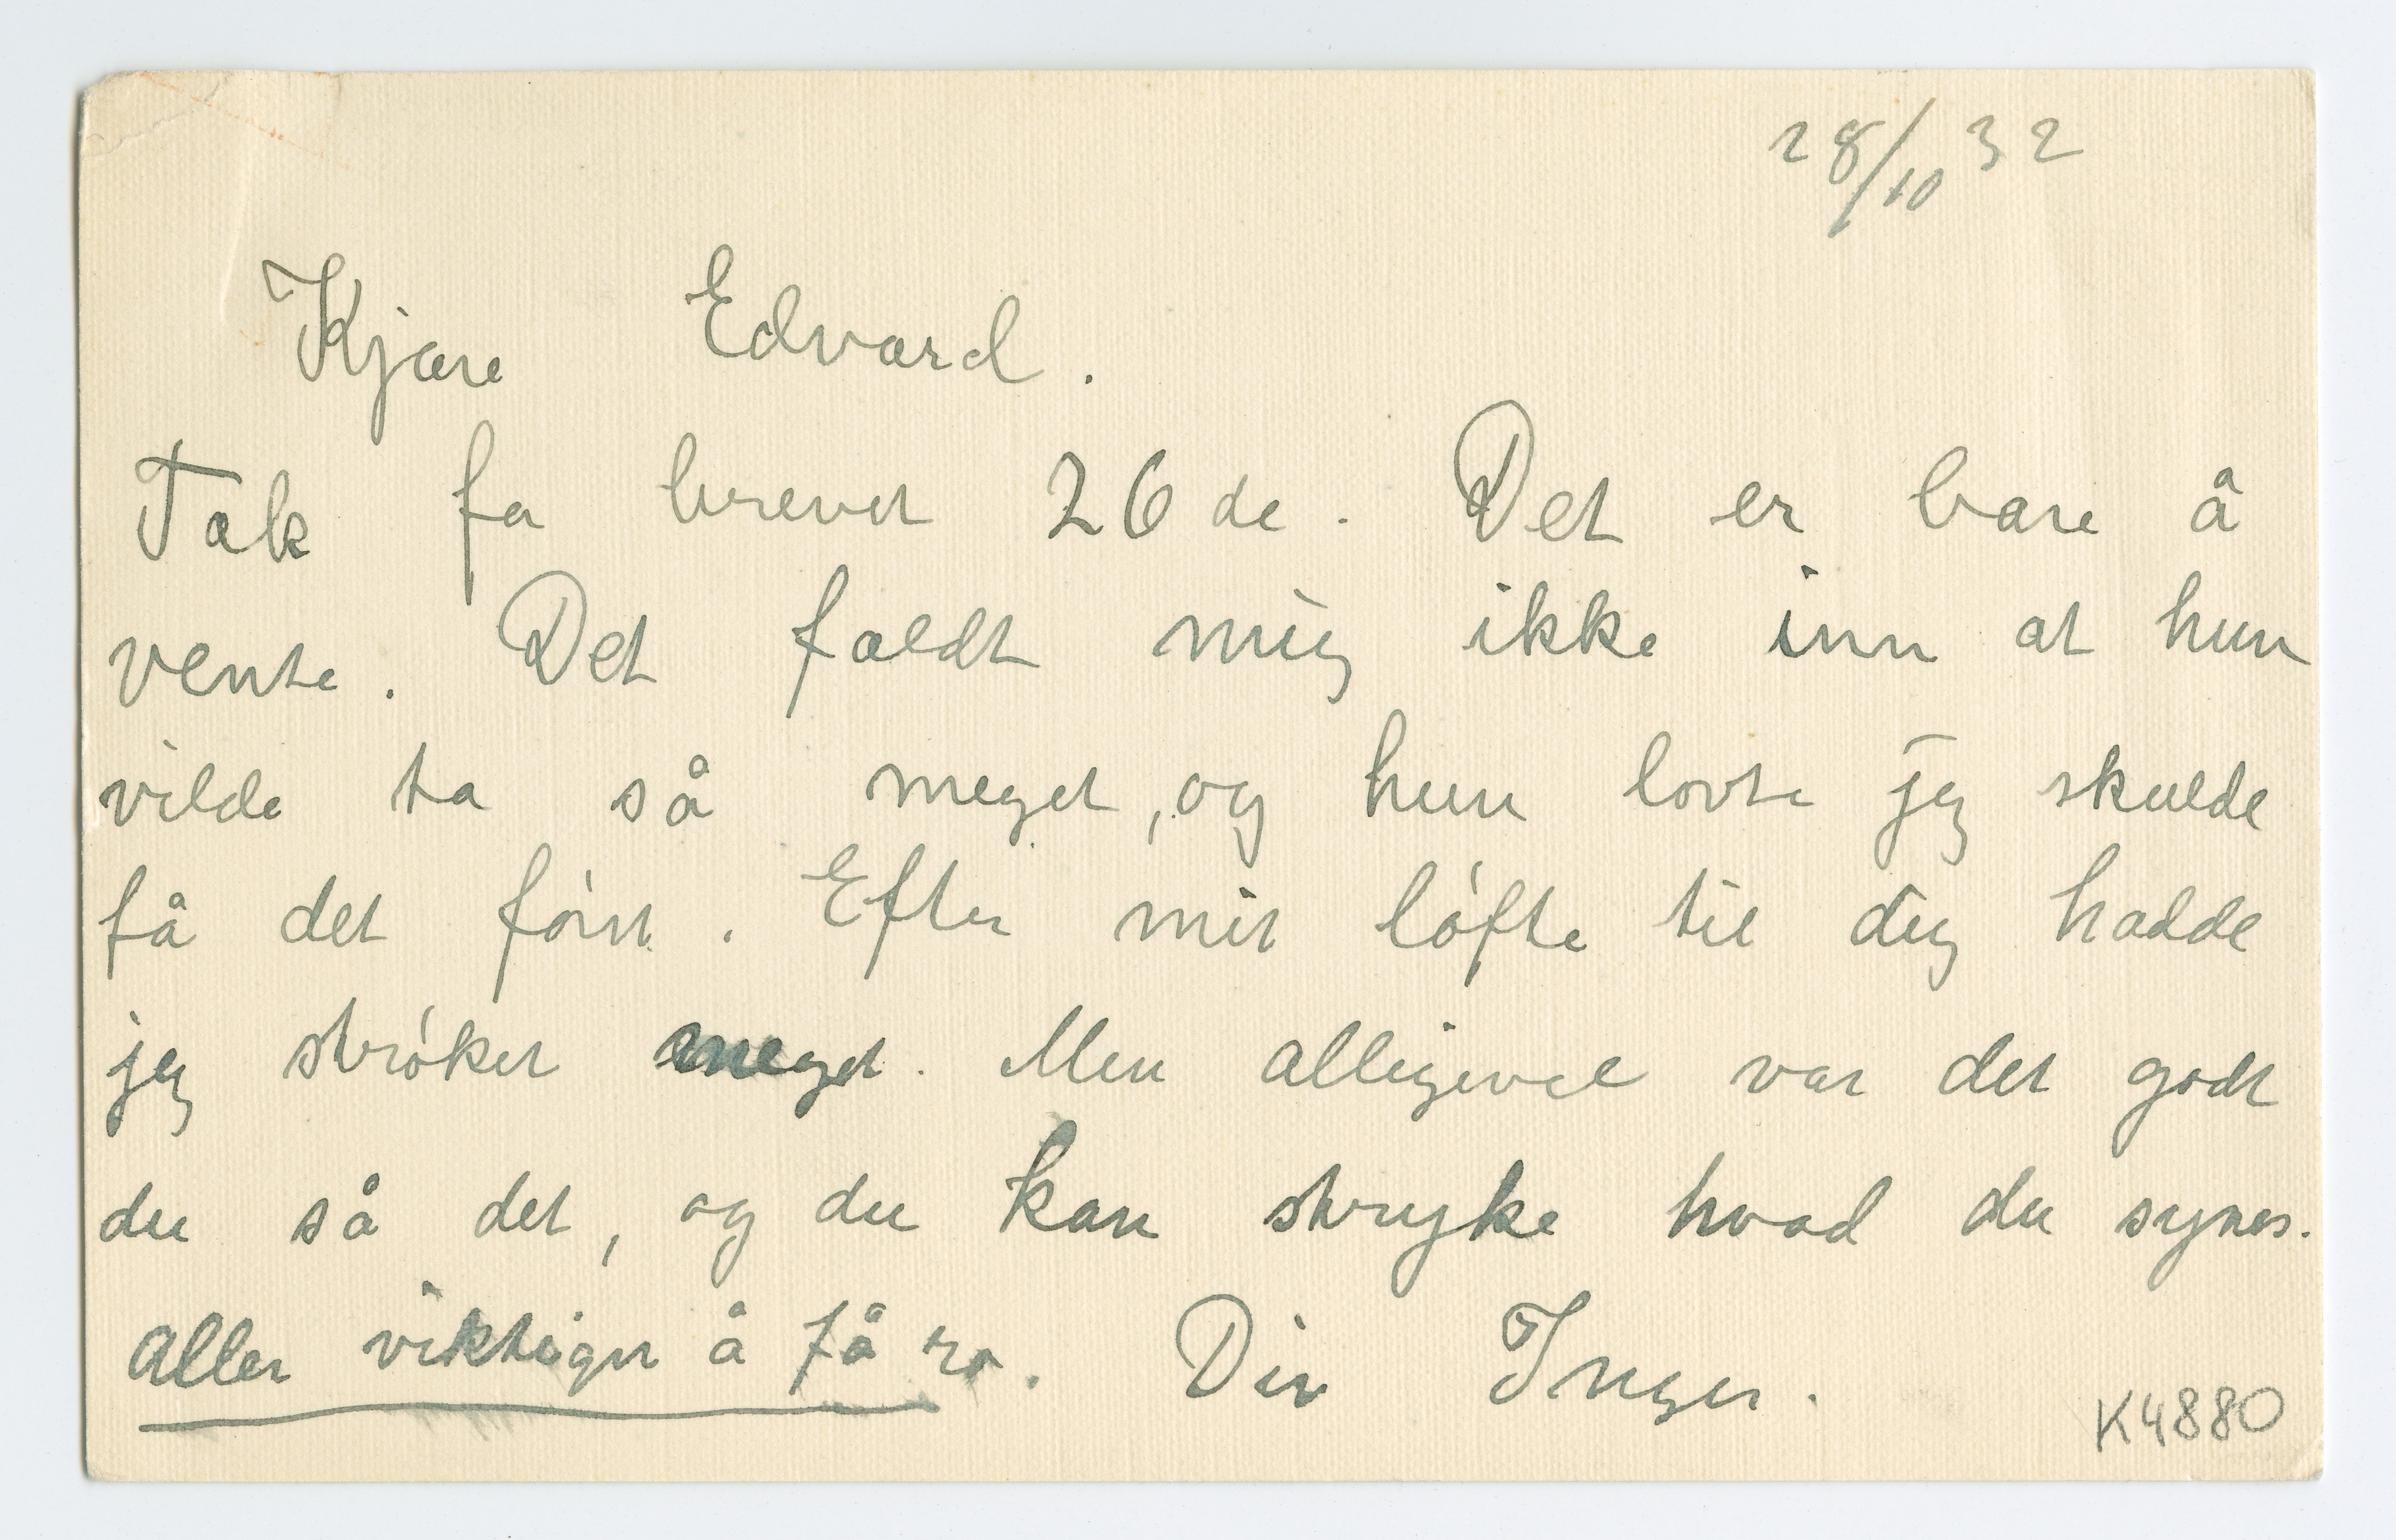 28/10 32
Kjære Edvard.
Tak for brevet 26de. Det er bare å
vente. Det faldt mig ikke inn at hun
vilde ta så meget, og hun lovte jeg skulde
få det først. Efter mit løfte til dig hadde
jeg strøket meget. Men alligevel var det godt
du så det, og du kan stryke hvad du synes.
Aller viktigst å få ro. Din Inger.
K4880